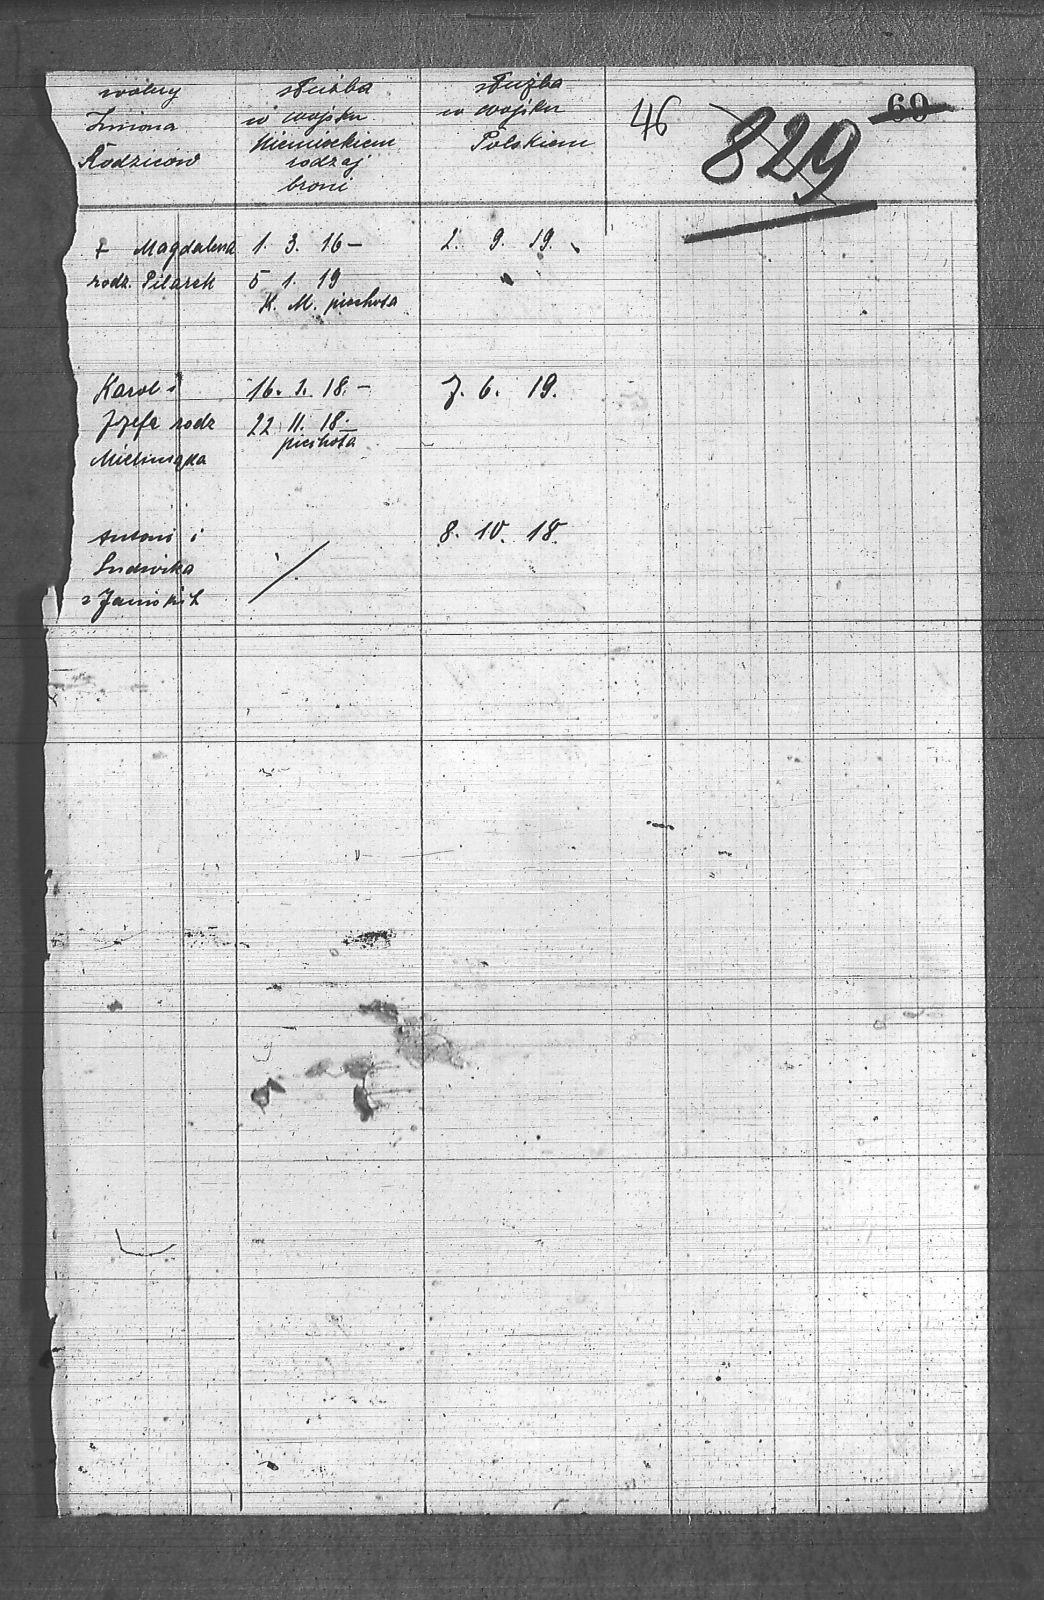 wolny
Imiona
Rodziców
służba
w wojsku
Niemieckiem
rodzaj
broni
służba
w wojsku
Polskiem
46
829
60
+ Magdalena
rodz. Pilarek
1. 3. 16 –
5 1. 19
K. M. piechota
2. 9. 19.
Karol i
Józefa rodz
16. 1. 18. –
22 11. 18.
piechota
7. 6. 19.
Antoni i
Ludwika
z
8. 10. 18.